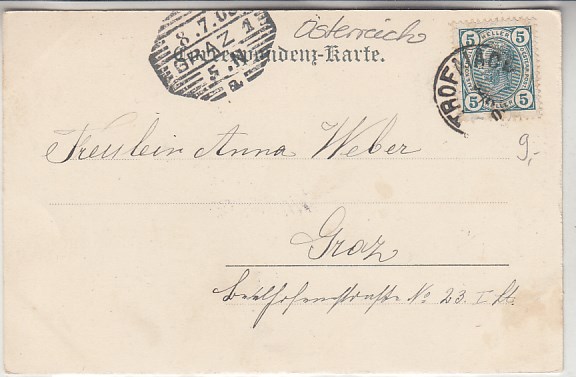 Österreich
8.7.0
GRAZ 1
5.N
a.
Correspondenz-Karte.
5 5
HELLER
5 5
TROFAIACH
9,-
Fräulein Anna Weber
Graz
Beethofenstraße No 23. I St.